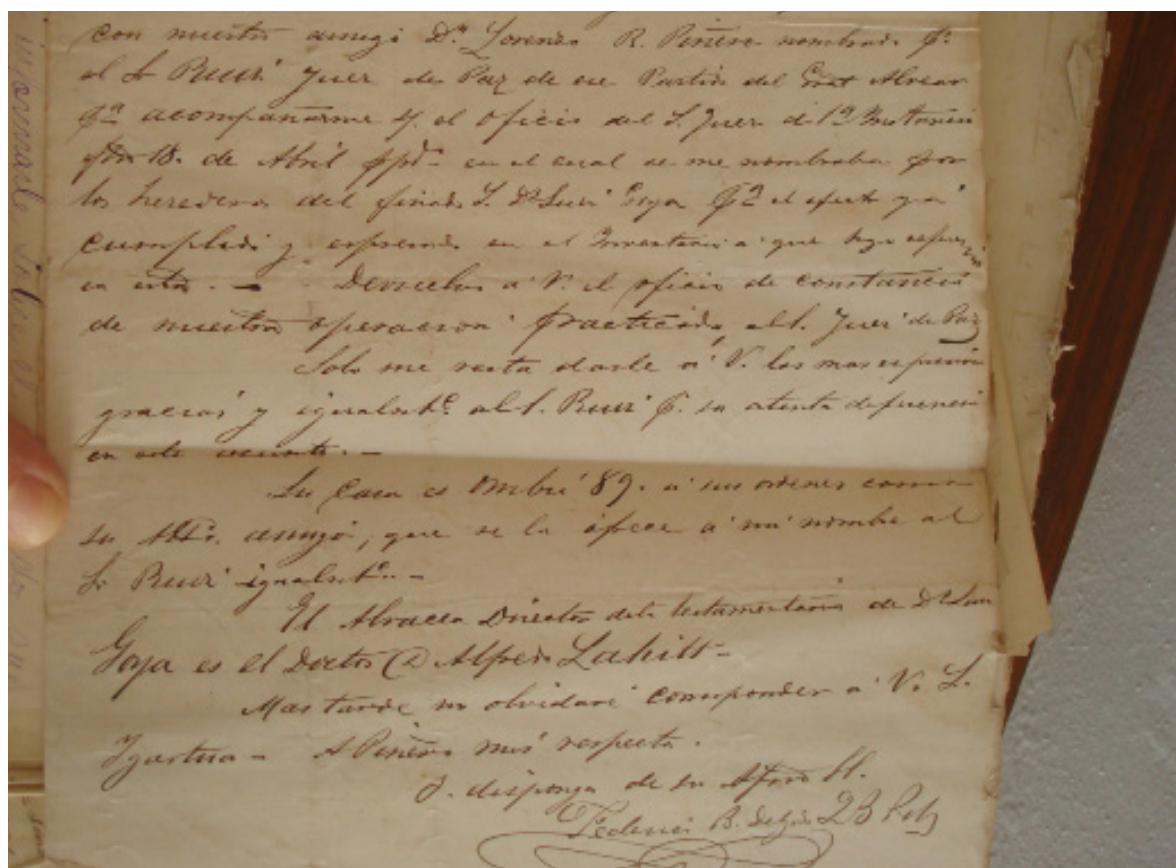 con nuestro amigo Dn. Lorenzo R. Piñero nombrado p.
el Sr Ruiz Juez de Paz de ese Partido del Gral Alvear
pa acompañarme y el oficio del S. Juez de 1a Instancia
18. de Abril ppdo en el cual se me nombraba por
los herederos del finado S. Dn Luis Goya pa el efecto ya
cumplido y espresado en el Inventario a que hago
en esta. — Devuelvo a V. el oficio de constancia
de nuestra operacion practicada al S. Juez de Paz
Solo me resta darle a V. las mas espresivas
gracias y igualmte. al S. Ruiz p. su atenta deferencia
en este asunto. —
Su Casa es Ombú 89. a sus ordenes como
su amigo, que se la ofrece a mi nombre al
Sr Ruiz igualmte. —
El Albacea Director de la testamentaria de Dn Luis
Goya es el Doctor D Alfredo Lahitte —
Mas tarde no olvidaré corresponder a V. S.
Ygartua — A Piñero mis respetos.
Y. disponga de su Afmo S.
Federico B.